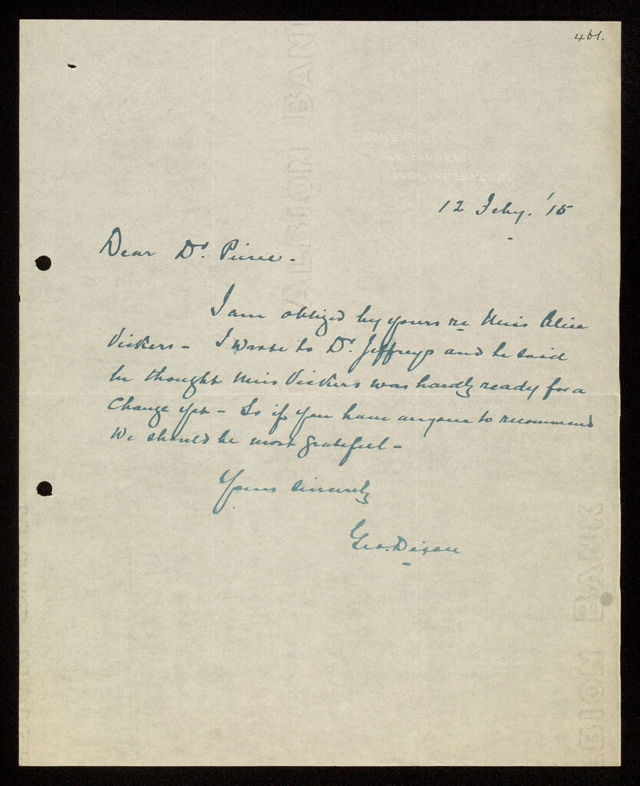 461.
12 Feby. '15
Dear Dr. Pierce -
I am obliged by yours re Miss Alice
Vickers - I wrote to Dr. Jeffreys and he said
he thought Miss Vickers was hardly ready for a
change yet - So if you have anyone to recommend
we should be most grateful -
Yours sincerely
Geo. Dixon
ALBION BANK